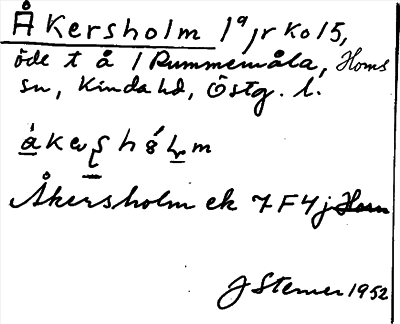 Åkersholm 1ª jr ko 15,
öde t å / Rummemåla, Horns
sn, Kinda hd, Östg. l.
åkersholm
Åkersholm ek 7F4j
J Sterner 1952